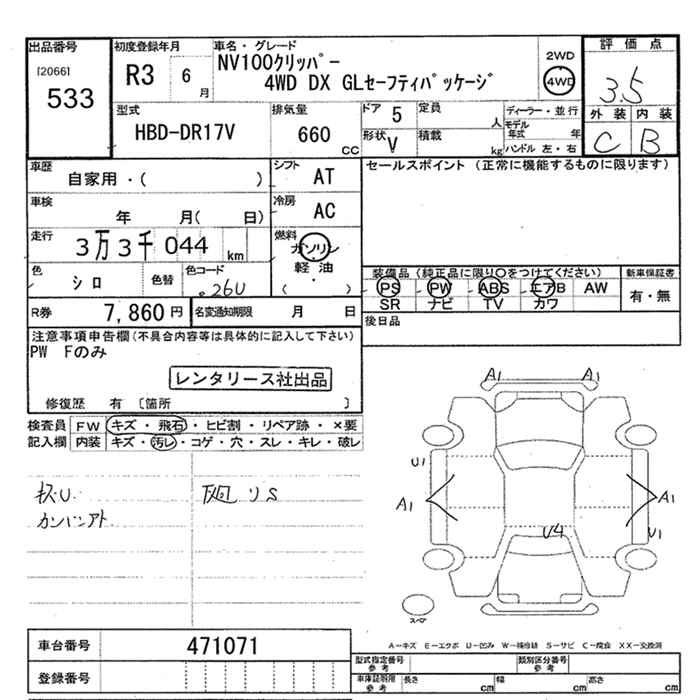 出品番号 初度登録年月 車名・グレード 評価点
[2066]
533
R3 6月
NV100クリッパー
4WD DX GLセーフティパッケージ
2WD
4WD
3.5
外装 内装
C B
型式 排気量 ドア 定員 ディーラー・並行
HBD-DR17V 660 CC 5 人 モデル年式 年
形状 V 積載 kg ハンドル 左・右
車歴 シフト セールスポイント (正常に機能するものに限ります)
自家用・( ) AT
車検 冷房
年 月( 日) AC
走行 燃料
3万3千044 km ガソリン
軽油
( )
色 シロ 色替 色コード 26U
装備品 (純正品に限り○をつけてください) 新車保証書
PS PW ABS エアB AW 有・無
SR ナビ TV カワ
R券 7,860円 名変通知期限 月 日 後日品
注意事項申告欄(不具合内容等は具体的に記入して下さい)
PW Fのみ
レンタリース社出品
修復歴 有 [箇所 ]
検査員 FW キズ・飛石・ヒビ割・リペア跡・×要
記入欄 内装 キズ・汚レ・コゲ・穴・スレ・キレ・破レ
カンバンアト
A1 A1
U1
A1 A1
U4 U1
スペア
A−キズ E−エクボ U−凹み W−補修跡 S−サビ C−腐食 XX−交換済
車台番号 471071
登録番号
型式指定番号 参考 類別区分番号 参考
車庫証明用 参考 長さ cm 幅 cm 高さ cm